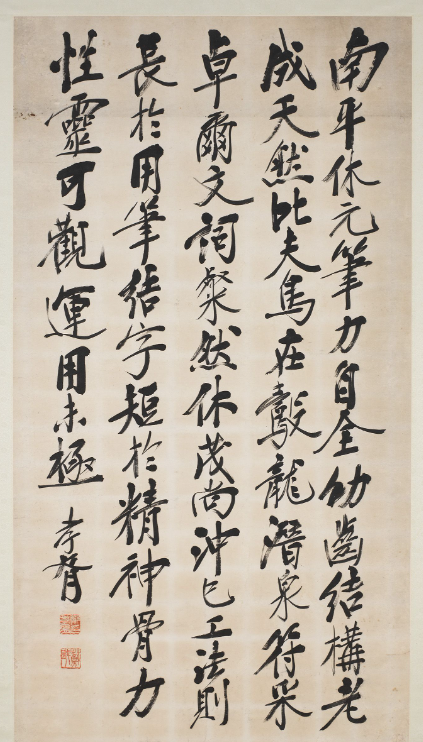 南平休元筆力自全幼齒結構老
成天然比夫鳥在鷇龍潛泉符采
卓爾文詞粲然休茂尚沖已工法則
長於用筆結字短於精神骨力
性靈可觀運用未極
孝胥